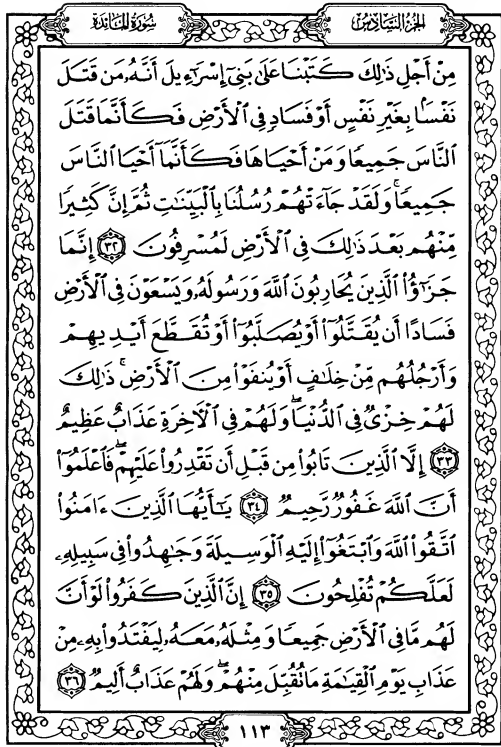 سُورَةُ المَائدة
الجُزءُ السَّادِسُ
مِنْ أَجْلِ ذَٰلِكَ كَتَبْنَا عَلَىٰ بَنِىٓ إِسْرَٰٓءِيلَ أَنَّهُۥ مَن قَتَلَ
نَفْسًۢا بِغَيْرِ نَفْسٍ أَوْ فَسَادٍ فِى ٱلْأَرْضِ فَكَأَنَّمَا قَتَلَ
ٱلنَّاسَ جَمِيعًا وَمَنْ أَحْيَاهَا فَكَأَنَّمَآ أَحْيَا ٱلنَّاسَ
جَمِيعًا ۚ وَلَقَدْ جَآءَتْهُمْ رُسُلُنَا بِٱلْبَيِّنَٰتِ ثُمَّ إِنَّ كَثِيرًا
مِّنْهُم بَعْدَ ذَٰلِكَ فِى ٱلْأَرْضِ لَمُسْرِفُونَ ٣٢ إِنَّمَا
جَزَٰٓؤُا۟ ٱلَّذِينَ يُحَارِبُونَ ٱللَّهَ وَرَسُولَهُۥ وَيَسْعَوْنَ فِى ٱلْأَرْضِ
فَسَادًا أَن يُقَتَّلُوٓا۟ أَوْ يُصَلَّبُوٓا۟ أَوْ تُقَطَّعَ أَيْدِيهِمْ
وَأَرْجُلُهُم مِّنْ خِلَٰفٍ أَوْ يُنفَوْا۟ مِنَ ٱلْأَرْضِ ۚ ذَٰلِكَ
لَهُمْ خِزْىٌ فِى ٱلدُّنْيَا ۖ وَلَهُمْ فِى ٱلْءَاخِرَةِ عَذَابٌ عَظِيمٌ
٣٣ إِلَّا ٱلَّذِينَ تَابُوا۟ مِن قَبْلِ أَن تَقْدِرُوا۟ عَلَيْهِمْ ۖ فَٱعْلَمُوٓا۟
أَنَّ ٱللَّهَ غَفُورٌ رَّحِيمٌ ٣٤ يَٰٓأَيُّهَا ٱلَّذِينَ ءَامَنُوا۟
ٱتَّقُوا۟ ٱللَّهَ وَٱبْتَغُوٓا۟ إِلَيْهِ ٱلْوَسِيلَةَ وَجَٰهِدُوا۟ فِى سَبِيلِهِۦ
لَعَلَّكُمْ تُفْلِحُونَ ٣٥ إِنَّ ٱلَّذِينَ كَفَرُوا۟ لَوْ أَنَّ
لَهُم مَّا فِى ٱلْأَرْضِ جَمِيعًا وَمِثْلَهُۥ مَعَهُۥ لِيَفْتَدُوا۟ بِهِۦ مِنْ
عَذَابِ يَوْمِ ٱلْقِيَٰمَةِ مَا تُقُبِّلَ مِنْهُمْ ۖ وَلَهُمْ عَذَابٌ أَلِيمٌ ٣٦
١١٣